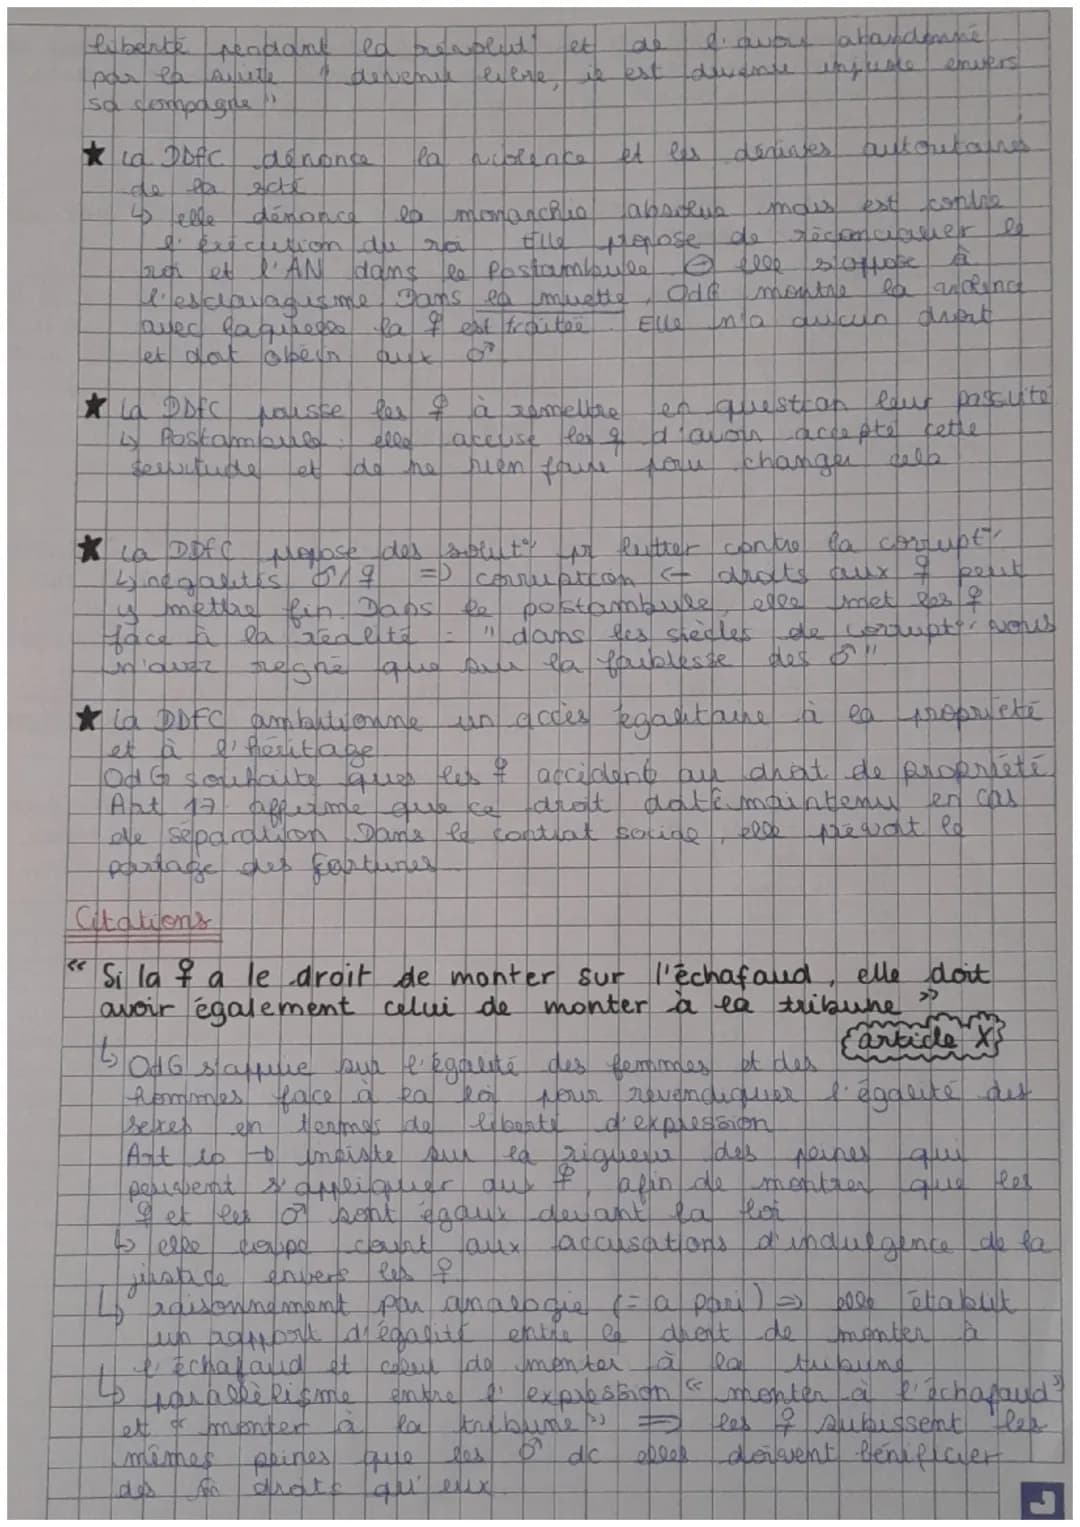 liberté pendant la révolut° et de l'avoir abandonné
par la suite " devenu libre, il est devenu injuste envers
sa compagne "
★ La DDFC dénonce la violence et les dérives autoritaires
de la scté
↳ elle dénonce la monarchie absolue mais est contre
l'exécution du roi Elle propose de réconcilier le
roi et l'AN dans le Postambule ⊖ elle s'oppose à
l'esclavagisme Dans la muette, OdG montre la
avec laquelle la ♀ est traitée. Elle n'a aucun droit
et doit obéir aux ♂
★ La DDFC pousse les ♀ à remettre en question leur passivité
↳ Postambule : elle accuse les ♀ d'avoir accepté cette
servitude et de ne rien faire pour changer cela
★ La DDFC propose des solut° pr lutter contre la corrupt°
↳ inégalités ♂/♀ => corruption ← droits aux ♀ peut
y mettre fin. Dans le postambule, elle met les ♀
face à la réalité : " dans les siècles de corrupt° vous
n'avez regné que sur la faiblesse des ♂ "
★ La DDFC ambitionne un accès égalitaire à la propriété
et à l'héritage
OdG souhaite que les ♀ accident au droit de propriété
Art 17 affirme que ce droit doit ê maintenu en cas
de séparation Dans le contrat social, elle prévoit le
partage des fortunes
Citations
" Si la ♀ a le droit de monter sur l'échafaud, elle doit
avoir également celui de monter à la tribune "
article X
↳ OdG s'appuie sur l'égalité des femmes et des
Hommes face à la loi pour revendiquer l'égalité des
sexes en termes de liberté d'expression
Art 10 → insiste sur la rigueur des peines qui
peuvent s'appliquer aux ♀, afin de montrer que les
♀ et les ♂ sont égaux devant la loi
↳ elle coupe court aux accusations d'indulgence de la
justice envers les ♀
↳ raisonnement par analogie (= a pari) => elle établit
un rapport d'égalité entre le droit de monter à
l'échafaud et celui de monter à la tribune
↳ parallèlisme entre l'expression « monter à l'échafaud »
et « monter à la tribune » => les ♀ subissent les
mêmes peines que les ♂ dc elles doivent bénéficier
des m̂ droits qu'eux